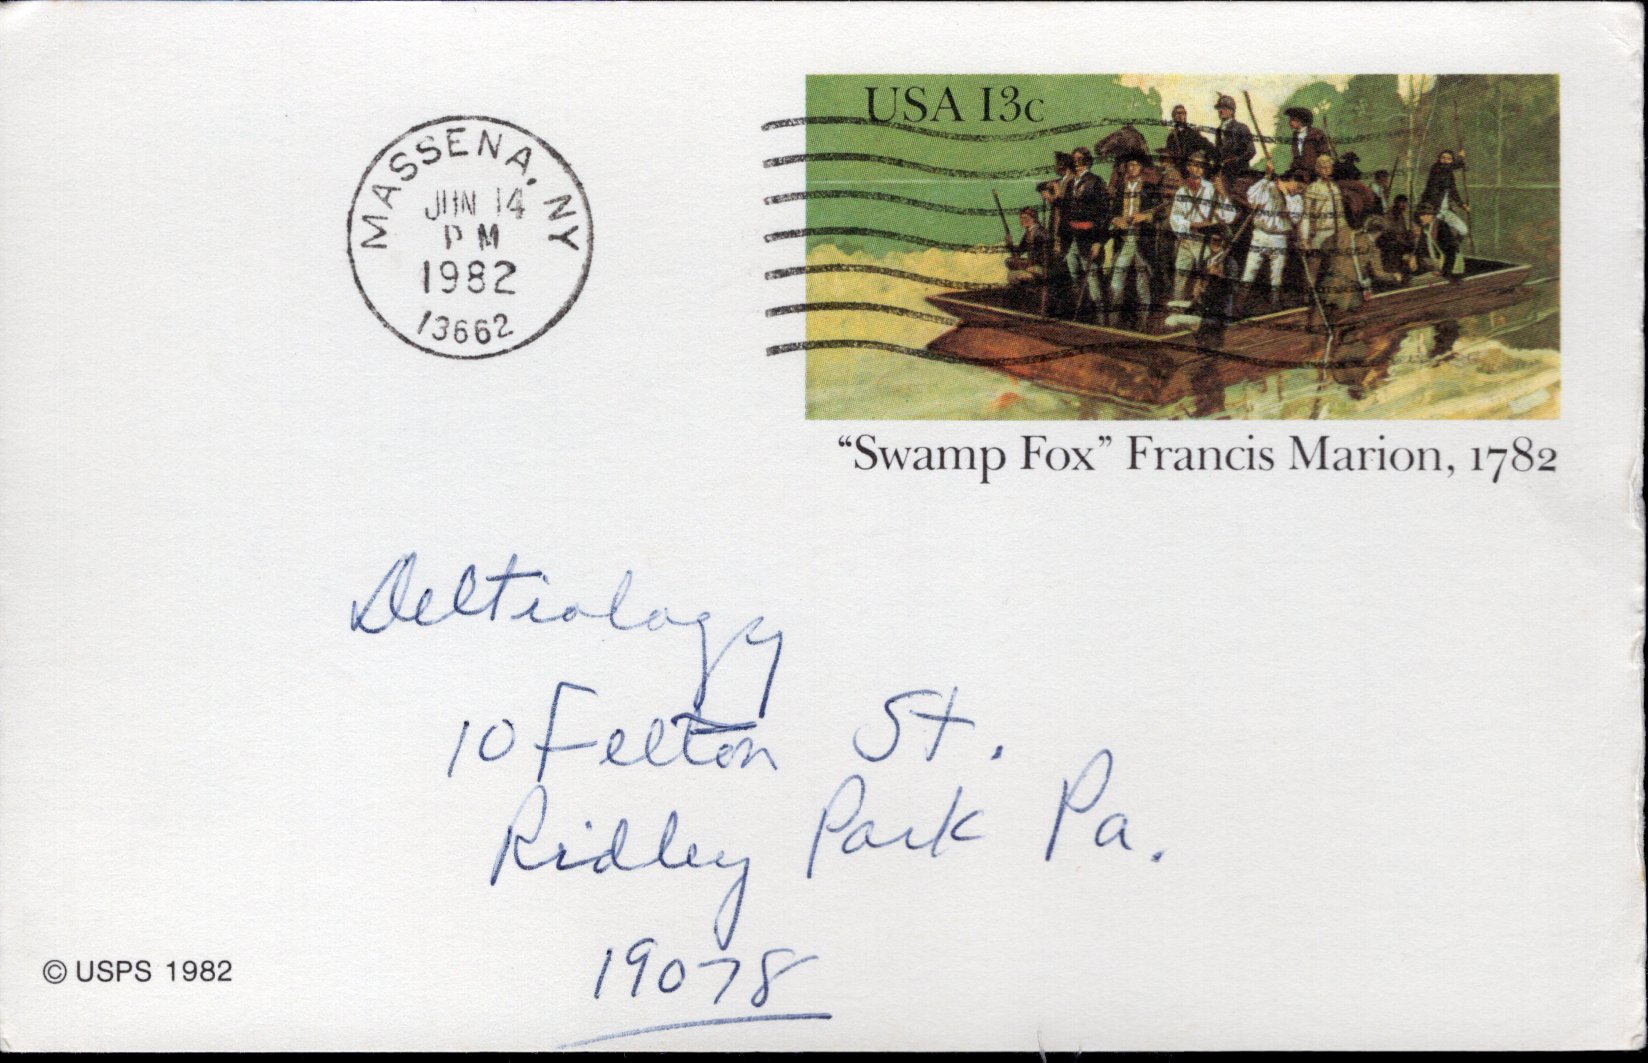 MASSENA, NY
JUN 14
PM
1982
13662
USA 13c
“Swamp Fox” Francis Marion, 1782
Deltiology
10 Felton St.
Ridley Park Pa.
19078
© USPS 1982